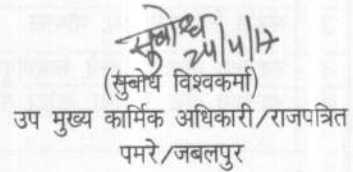 सुबोध
24/4/17
(सुबोध विश्वकर्मा)
उप मुख्य कार्मिक अधिकारी/राजपत्रित
पमरे/जबलपुर